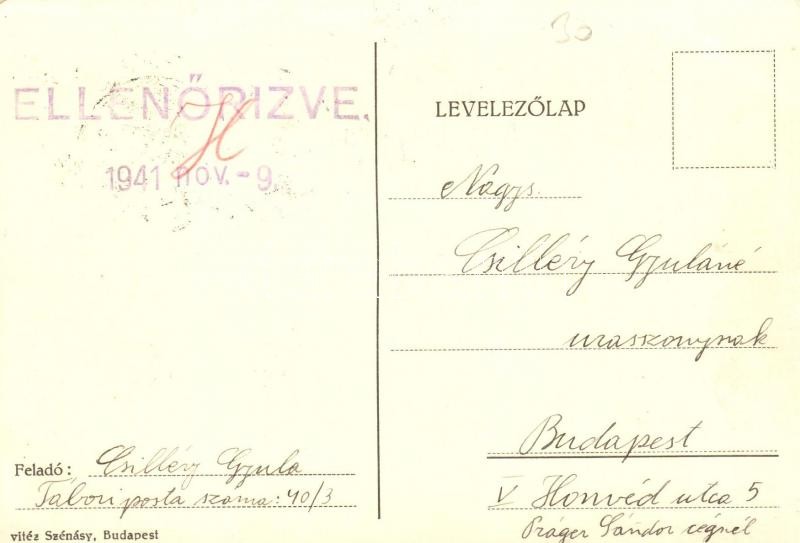 30
ELLENŐRIZVE.
H
1941 nov. - 9.
LEVELEZŐLAP
Nágys.
Csilléry Gyuláné
uraszonynak
Budapest
V Honvéd utca 5
Práger Sándor cégnél
Feladó: Csilléry Gyula
Tábori posta száma: 40/3
vitéz Szénásy, Budapest